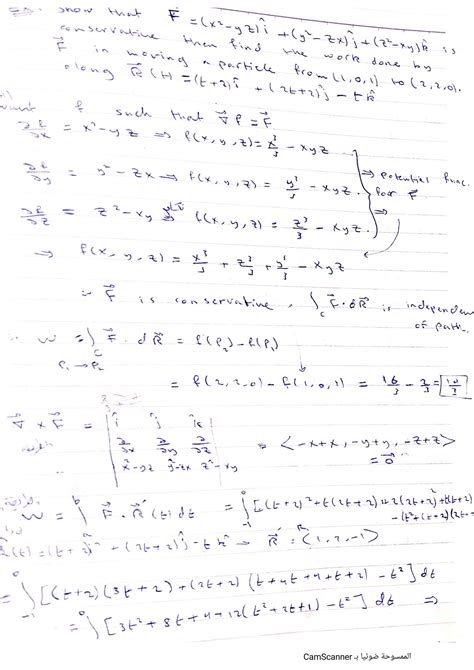 Ex. Show that F⃗ = (x²-yz)î + (y²-zx)ĵ + (z²-xy)k̂ is
conservative then find the work done by
F⃗ in moving a particle from (1,0,1) to (2,2,0).
along R⃗(t) = (t+2)î + (2t+2)ĵ - tk̂
f such that ∇⃗f = F⃗
∂f/∂x = x²-yz ⇒ f(x,y,z) = x³/3 - xyz
∂f/∂y = y²-zx ⇒ f(x,y,z) = y³/3 - xyz ⇒ potential func. for F⃗
∂f/∂z = z²-xy ⇒ f(x,y,z) = z³/3 - xyz ⇒
⇒ f(x,y,z) = x³/3 + z³/3 + y³/3 - xyz
∵ F⃗ is conservative, ∫_C F⃗·dR⃗ is independent
of path.
∴ W = ∫_C F⃗·dR⃗ = f(P₂) - f(P₁)
P₁→P₂
= f(2,2,0) - f(1,0,1) = 16/3 - 2/3 =
∇⃗ × F⃗ = | î ĵ k̂ | = <-x+x, -y+y, -z+z>
| ∂/∂x ∂/∂y ∂/∂z | = 0⃗
| x²-yz y²-zx z²-xy |
W = ∫ F⃗·R⃗'(t) dt = ∫₋₁⁰ [(t+2)²+t(2t+2)+2(2t+2)²+
R⃗(t) = (t+2)î + (2t+2)ĵ - tk̂ → R⃗' = <1,2,-1>
= ∫₋₁⁰ [(t+2)(3t+2)+(2t+2)(t+4+4+t+2) - t²] dt
= ∫₋₁⁰ [3t²+8t+4+12(t²+2t+1) - t²] dt ⇒
الممسوحة ضوئيا بـ CamScanner